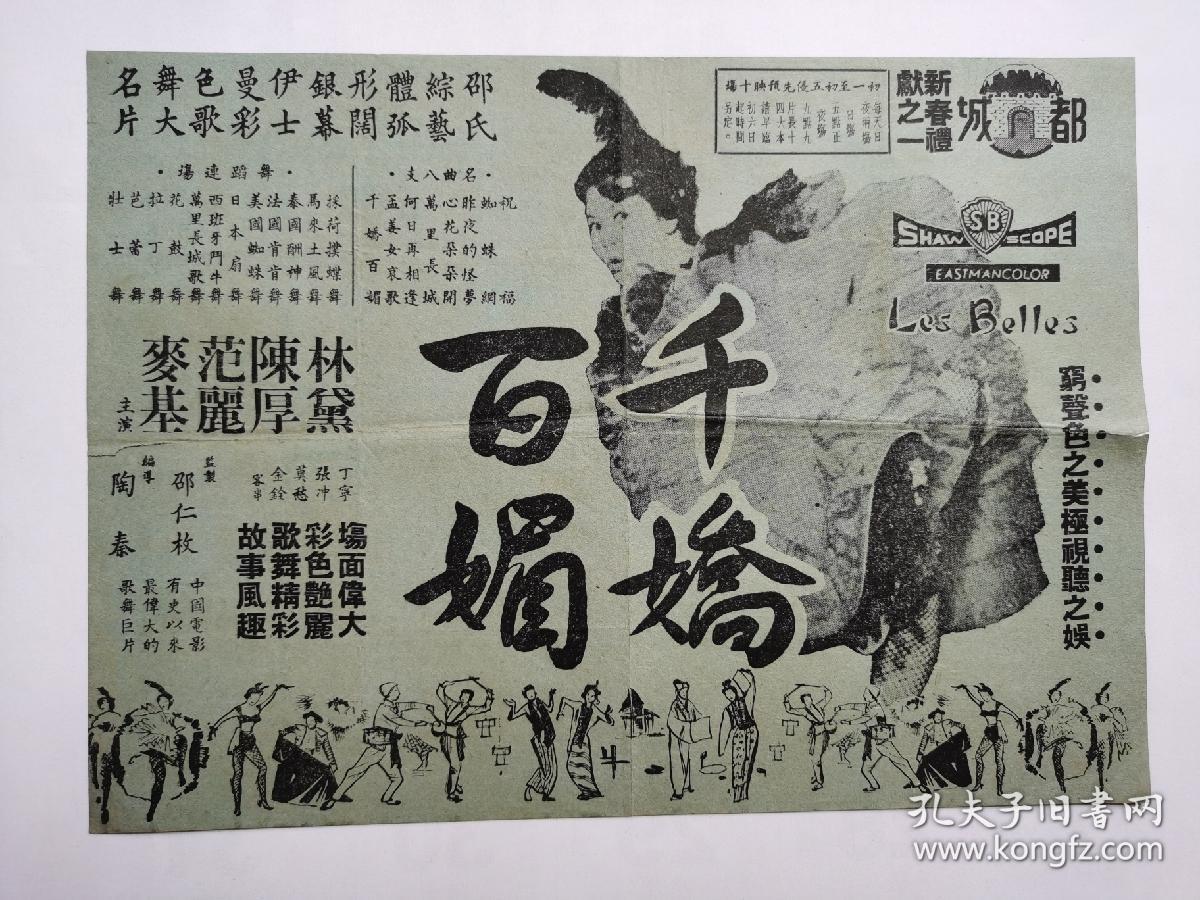 都城
新春禮
獻之一
初一至初五優先預映十場
每天日
夜兩場
日場
五點正
夜場
九點九
片長十
四大本
請早臨
初六日
起時間
另定。
邵氏
綜藝
體弧
形闊
銀幕
伊士
曼彩
色歌
舞大
名片
SHAW SB SCOPE
EASTMANCOLOR
Les Belles
窮聲色之美極視聽之娛
·名曲八支·
祝福
蜘蛛怪網
昨夜的夢
心花朵朵開
萬里長城
何日再相逢
孟姜女哀歌
千嬌百媚
·舞蹈連場·
採荷撲蝶舞
馬來土風舞
泰國酬神舞
法國肯肯舞
美國蜘蛛舞
日本扇舞
西班牙鬥牛舞
萬里長城歌舞
花鼓舞
拉丁舞
芭蕾舞
壯士舞
千嬌
百媚
林黛
陳厚
范麗
麥基
主演
丁寧
張冲
莫愁
金銓
客串
監製
邵仁枚
編導
陶秦
場面偉大
彩色艷麗
歌舞精彩
故事風趣
中國電影
有史以來
最偉大的
歌舞巨片
孔夫子旧书网
www.kongfz.com